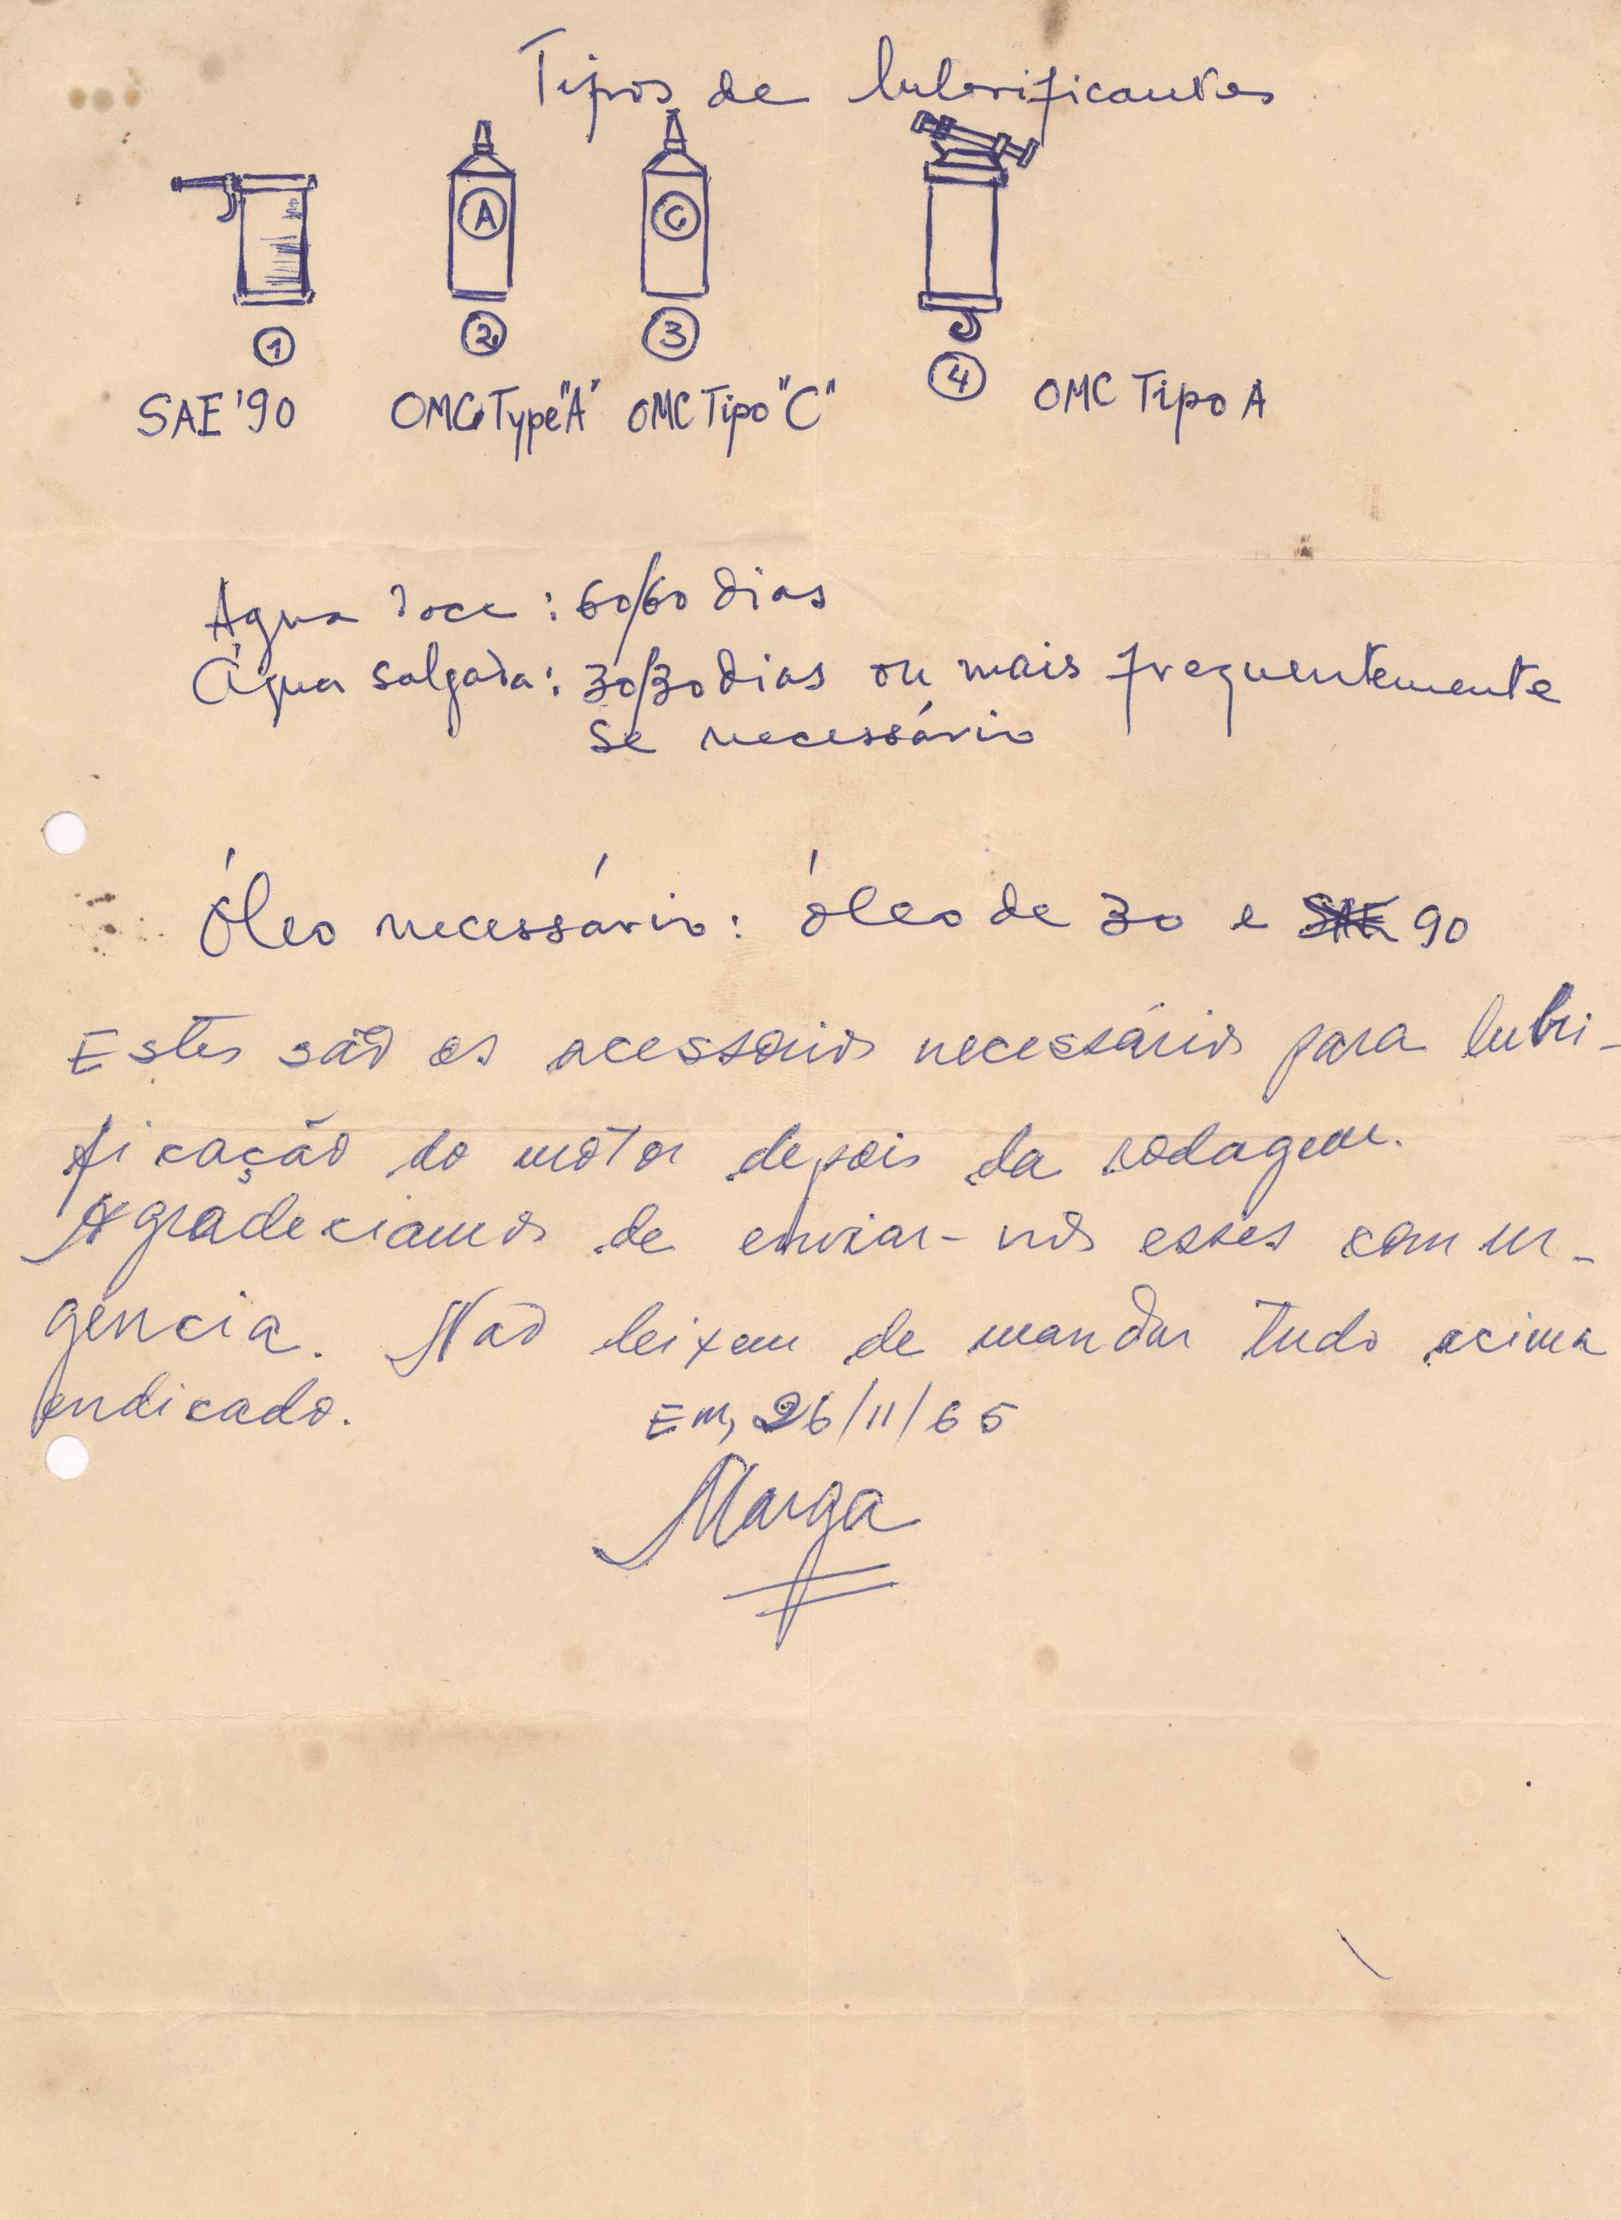 Tipos de lubrificantes
A C
1 2 3 4
SAE '90 OMC Type "A" OMC Tipo "C" OMC Tipo A
Água doce : 60/60 dias
Água salgada : 30/30 dias ou mais frequentemente
se necessário
Óleo necessário : óleo de 30 e SAE 90
Estes são os acessorios necessários para lubri-
ficação do motor depois da rodagem.
Agradeciamos de enviar-nos esses com ur-
gência. Não deixem de mandar tudo acima
indicado. Em, 26/11/65
Marga